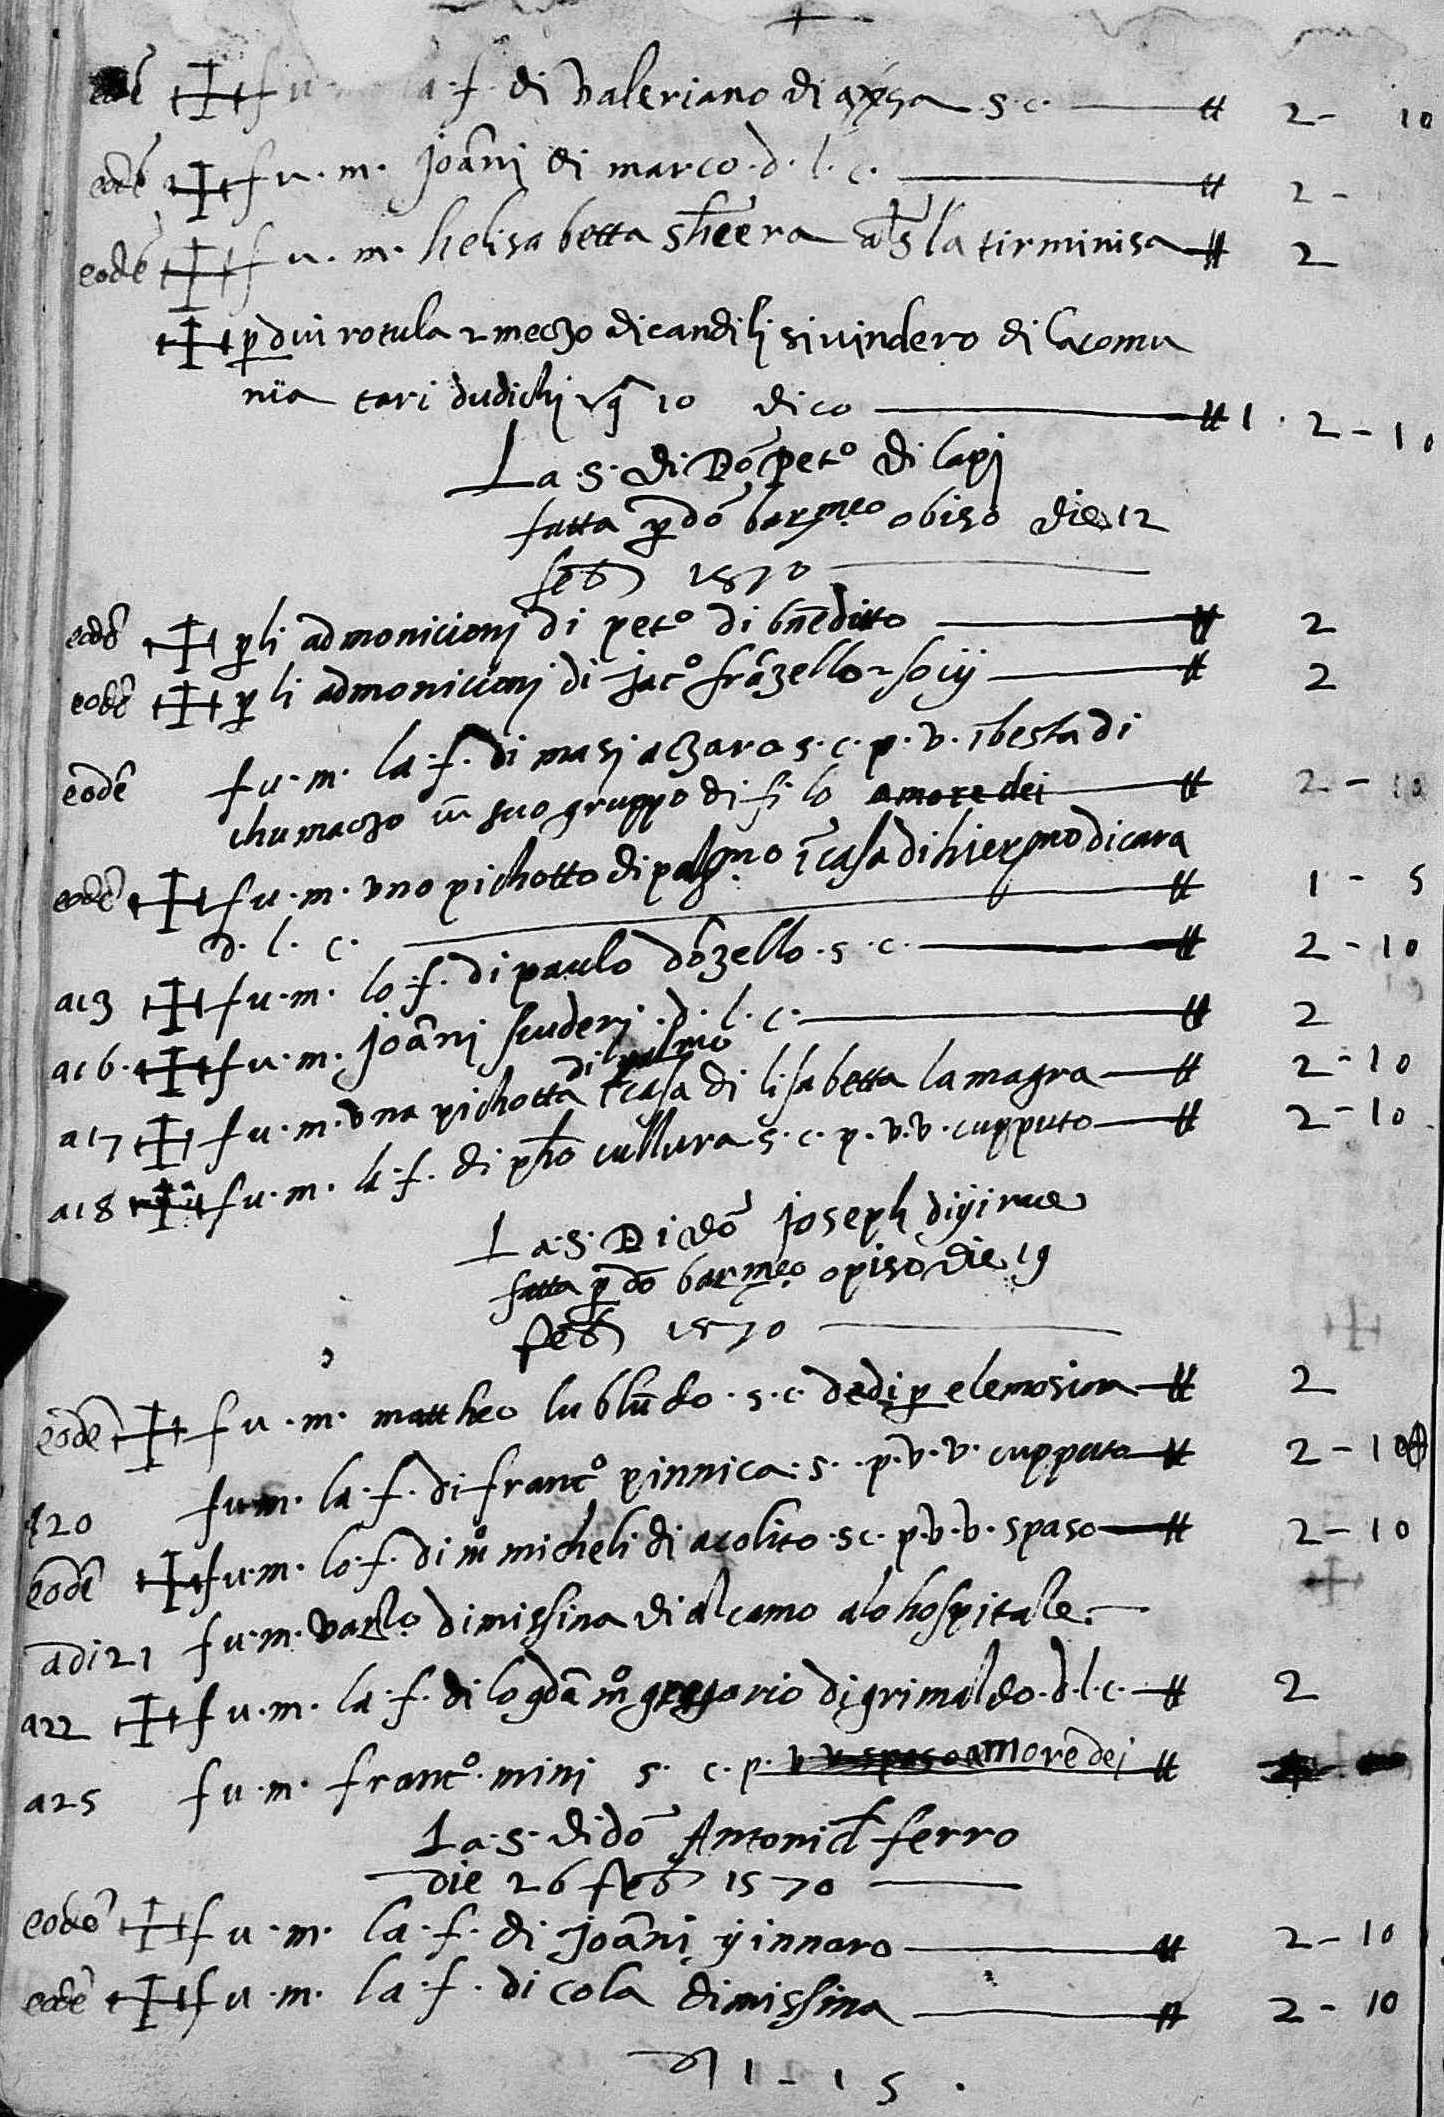 eodē fu · la · f · di valeriano di s · c · 2 - 10
eodē fu · m · Joāni di marco · d · l · c · 2 -
eodē fu · m · helisabetta als la tirminisa 2
p dui rotula 2 meczo di candili si vindero di la comu
nia tari dudichi 10 dico 1 · 2 - 10
La · S · di Dō Petº di lapi
fatta p dō barmeo obiso die 12
feb 1570
eodē p li admonicioni di petº di bn̄editto 2
eodē p li admonicioni di jacº frāzello 2 socij 2
eodē fu · m · la · f · di masi aczaro s · c · p · v · ī besta di
chumaczo suo gruppo di filo amore dei 2 - 10
eodē fu · m · uno pichotto di palmo ī casa di hiermo di cara
d · l · c · 1 - 5
a 13 fu · m · lo · f · di paulo dōzello · s · c · 2 - 10
a 16 · fu · m · Joāni scuderi · d · l · c · 2
di palmo
a 17 fu · m · una pichotta ī casa di lisabetta la magra 2 - 10
a 18 fu · m · la · f · di cullura s · c · p · v · v · cupputo 2 - 10
La · S · Di dō Joseph
fatta p dō barmeo opiso die 19
feb 1570
eodē fu · m · mattheo lu blūdo · s · c · dedi p elemosina 2
a 20 fu · m · la · f · di francº pinnica · s · p · v · v · cupputo 2 - 10
eodē fu · m · lo · f · di mº micheli di acolito · s c · p · v · v · spaso 2 - 10
adi 21 fu · m · di missina di alcamo a lo hospitale
a 22 fu · m · la · f · di lo qdā mº gregorio di grimaldo · d · l · c · 2
a 25 fu · m · francº · mini s · c · p · v v spaso amore dei
La · S · di dō Antoni d ferro
die 26 feb 1570
eodē fu · m · la · f · di Joāni yinnaro 2 - 10
eodē fu · m · la · f · di cola di missina 2 - 10
1 - 15 ·